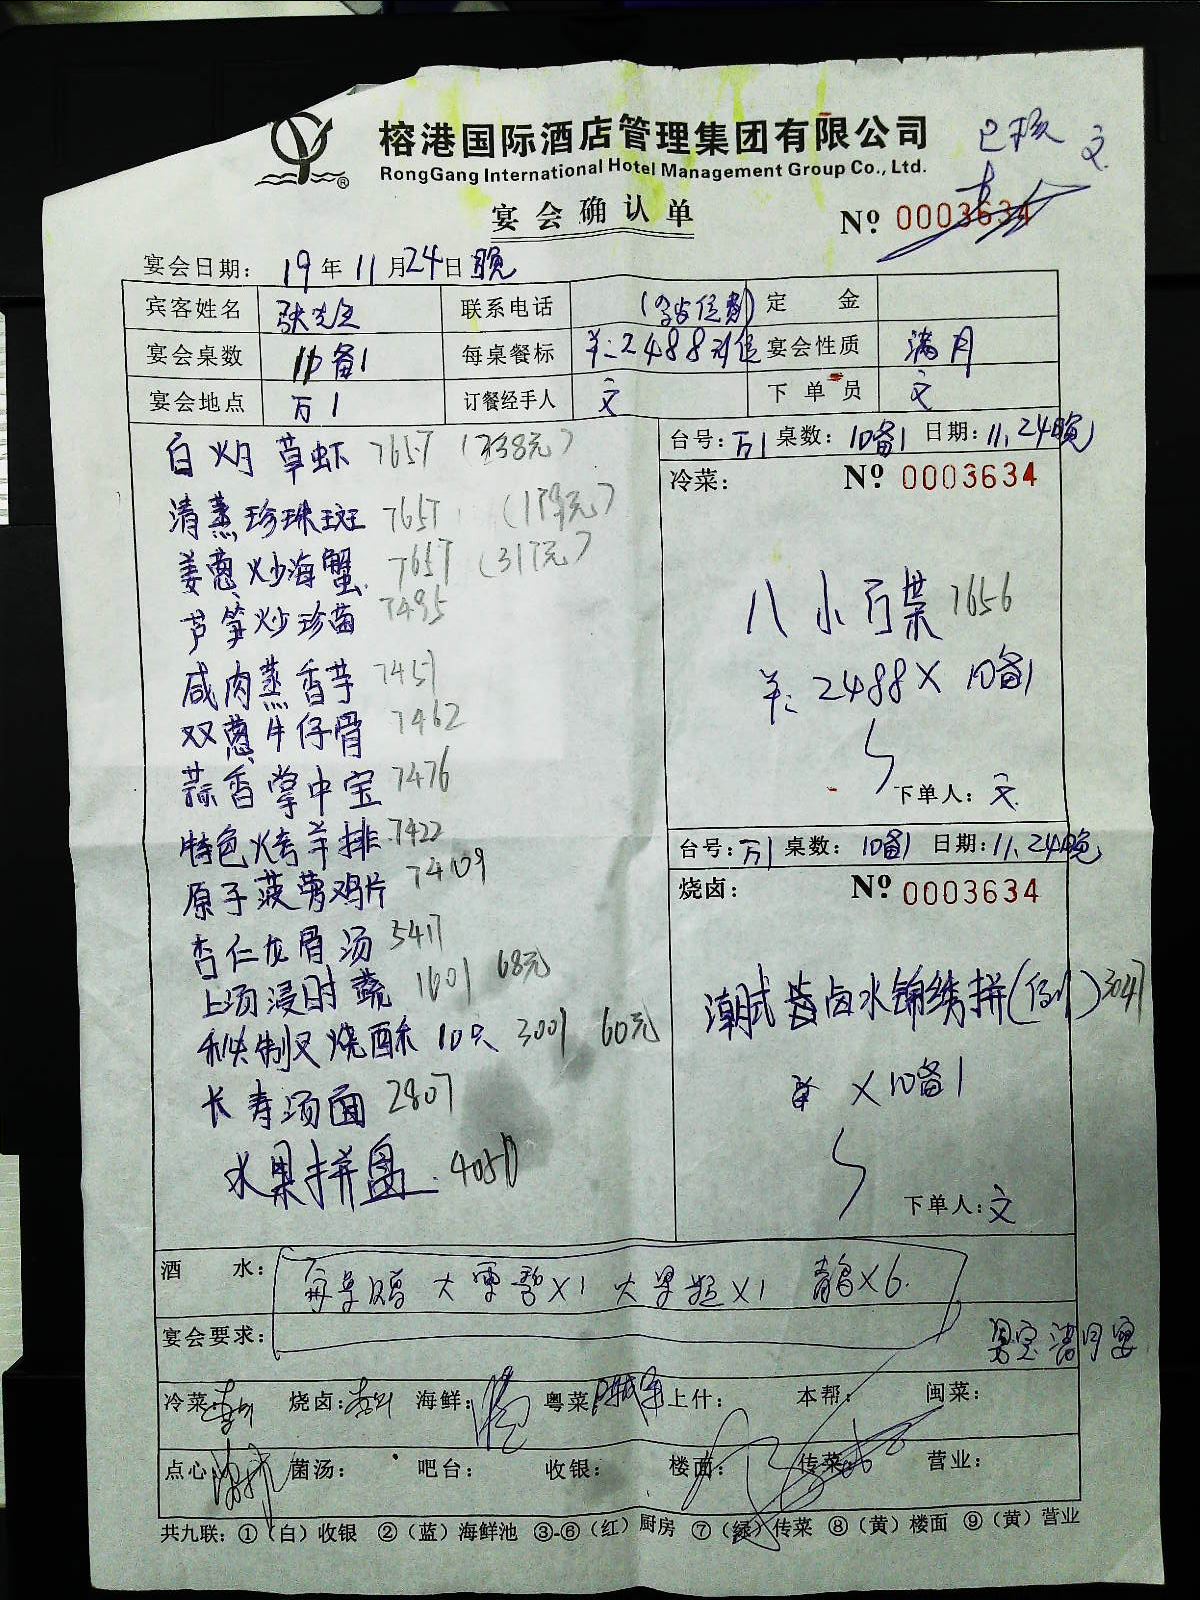 榕港国际酒店管理集团有限公司
RongGang International Hotel Management Group Co., Ltd.
已核 文
宴会确认单
№ 0003634
宴会日期: 19年11月24日 晚
宾客姓名 张先生 联系电话 定金
宴会桌数 10备1 每桌餐标 ¥:2488 宴会性质 满月
宴会地点 万1 订餐经手人 文 下单员 文
台号:万1 桌数:10备1 日期:11.24晚
冷菜: № 0003634
八小万碟 7656
¥:2488×10备1
下单人:文
台号:万1 桌数:10备1 日期:11.24晚
烧卤: № 0003634
潮式卤水锦绣拼(例) 3047
×10备1
下单人:文
白灼草虾 7657 (338元)
清蒸珍珠斑 7657 (179元)
姜葱炒海蟹 7657 (317元)
芦笋炒珍菌 7495
咸肉蒸香芋 7457
双葱牛仔骨 7462
蒜香掌中宝 7476
特色烤羊排 7422
原子菠萝鸡片 7409
杏仁龙骨汤 5417
上汤浸时蔬 1601 68元
秘制叉烧酥 10只 3001 60元
长寿汤面 2807
水果拼盘 4050
酒水: 每桌赠 大雪碧×1 大果粒×1 青岛×6
宴会要求: 男宝满月宴
冷菜: 烧卤: 海鲜: 粤菜: 上什: 本帮: 闽菜:
点心 菌汤: 吧台: 收银: 楼面: 传菜 营业:
共九联:①(白)收银 ②(蓝)海鲜池 ③-⑥(红)厨房 ⑦(绿)传菜 ⑧(黄)楼面 ⑨(黄)营业